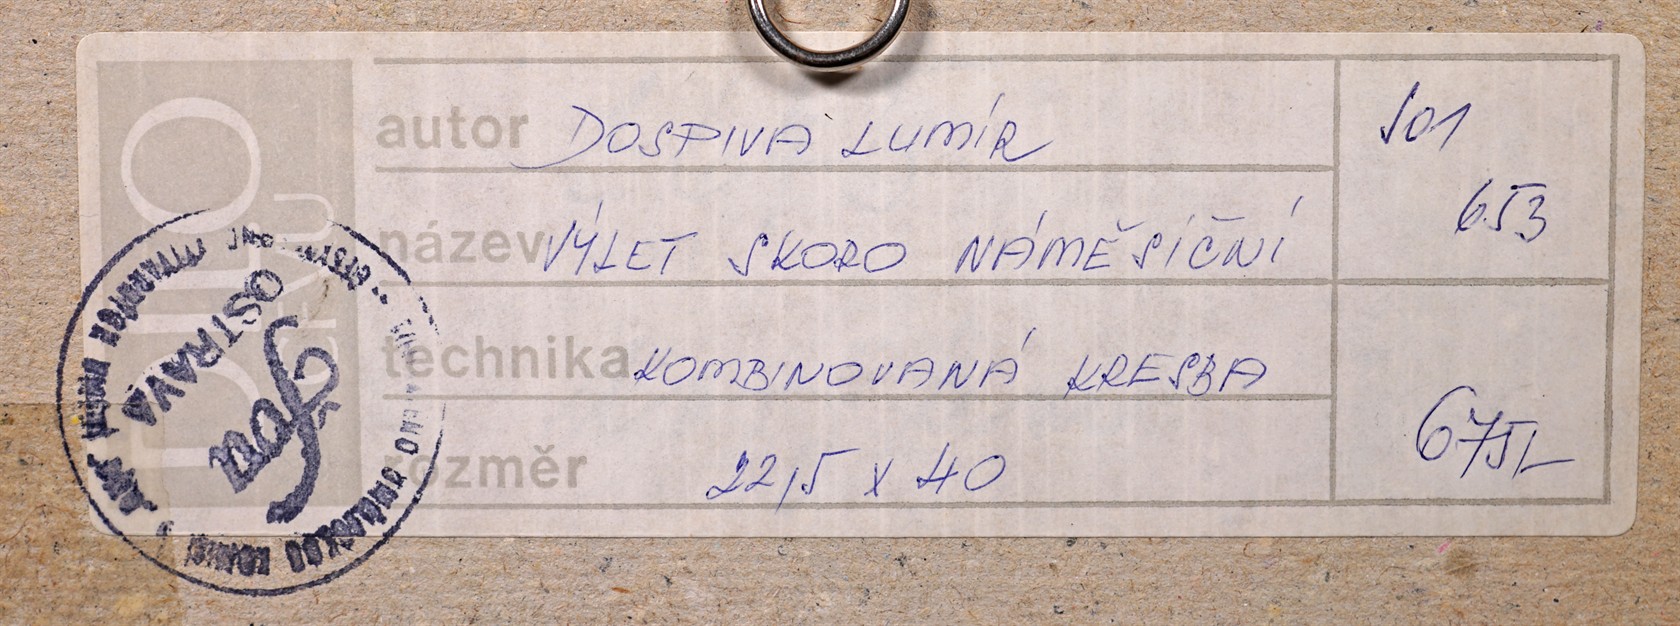 DÍLO
ČFVU
autor DOSPIVA LUMÍR
název VÝLET SKORO NÁMĚSÍČNÍ
technika KOMBINOVANÁ KRESBA
rozměr 22,5 x 40
101
653
OSTRAVA